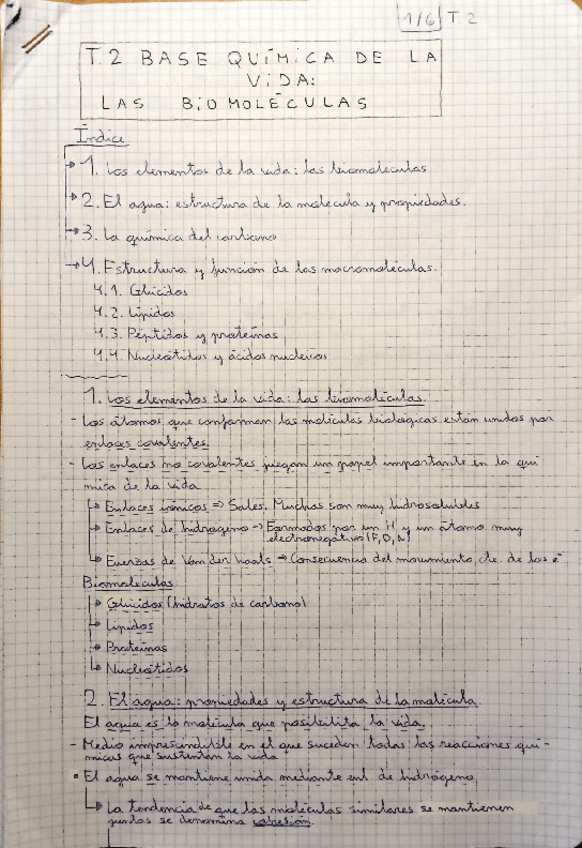 1/6 T.2
T.2 BASE QUÍMICA DE LA
VIDA:
LAS BIOMOLÉCULAS
Índice
1. Los elementos de la vida: las biomoléculas
2. El agua: estructura de la molécula y propiedades.
3. La química del carbono
4. Estructura y función de las macromoléculas.
4.1. Glúcidos
4.2. Lípidos
4.3. Péptidos y proteínas
4.4. Nucleótidos y ácidos nucleicos
1. Los elementos de la vida: las biomoléculas.
- Los átomos que conforman las moléculas biológicas están unidos por
enlaces covalentes.
- Los enlaces no covalentes juegan un papel importante en la quí
mica de la vida
Enlaces iónicos => Sales. Muchas son muy hidrosolubles
Enlaces de hidrógeno -> Formados por un H y un átomo muy
electronegativo (F, O, N)
Fuerzas de Van der Waals -> Consecuencia del movimiento cte. de los e-
Biomoléculas
Glúcidos (hidratos de carbono)
Lípidos
Proteínas
Nucleótidos
2. El agua: propiedades y estructura de la molécula.
El agua es la molécula que posibilita la vida.
- Medio imprescindible en el que suceden todas las reacciones quí-
micas que sustentan la vida
• El agua se mantiene unida mediante enl. de hidrógeno
La tendencia de que las moléculas similares se mantienen
juntas se denomina cohesión.